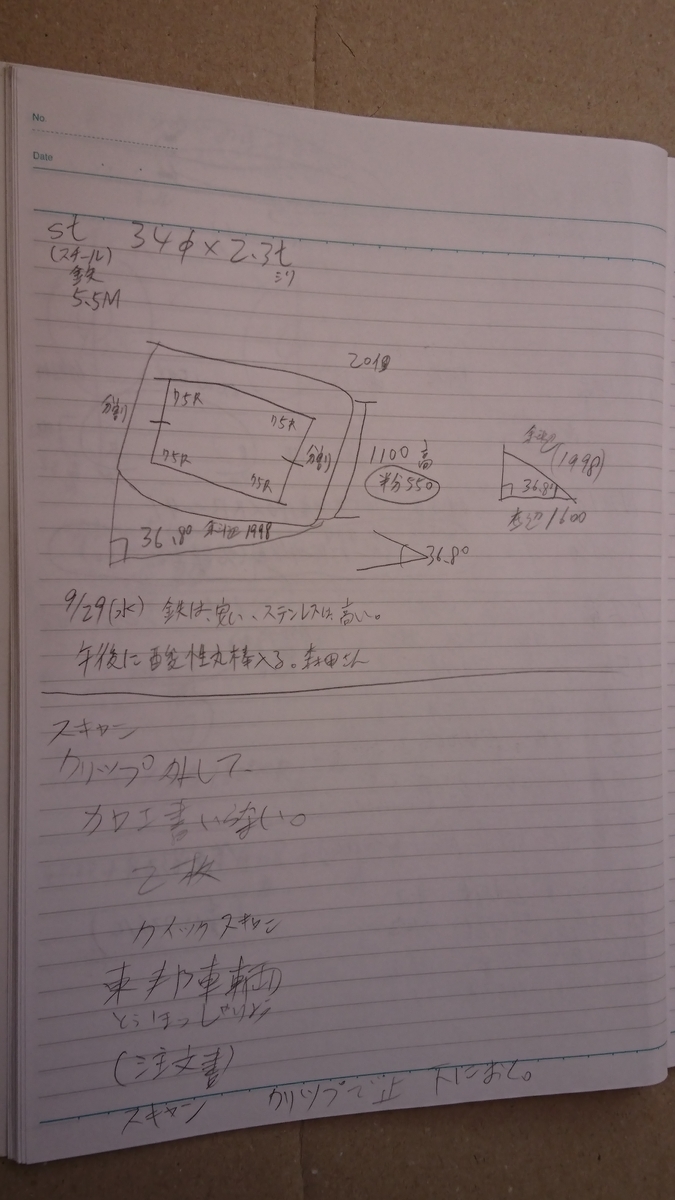 No.
Date
st 34φ×2.3t
(スチール) ミリ
鉄
5.5M
20個
分割 75R 75R
75R 75R 分割
1100 高
半分550
36.8° 斜辺 1998
36.8°
斜辺 (1998)
36.8°
底辺 1600
9/29(水) 鉄は、安い、ステンレスは、高い。
午後に酸性丸棒入る。森田さん
スキャン
クリップ外して、
加工書いらない。
2枚
クイックスキャン
東邦車輛
とうほうしゃりょう
(注文書)
スキャン クリップで止 下におく。